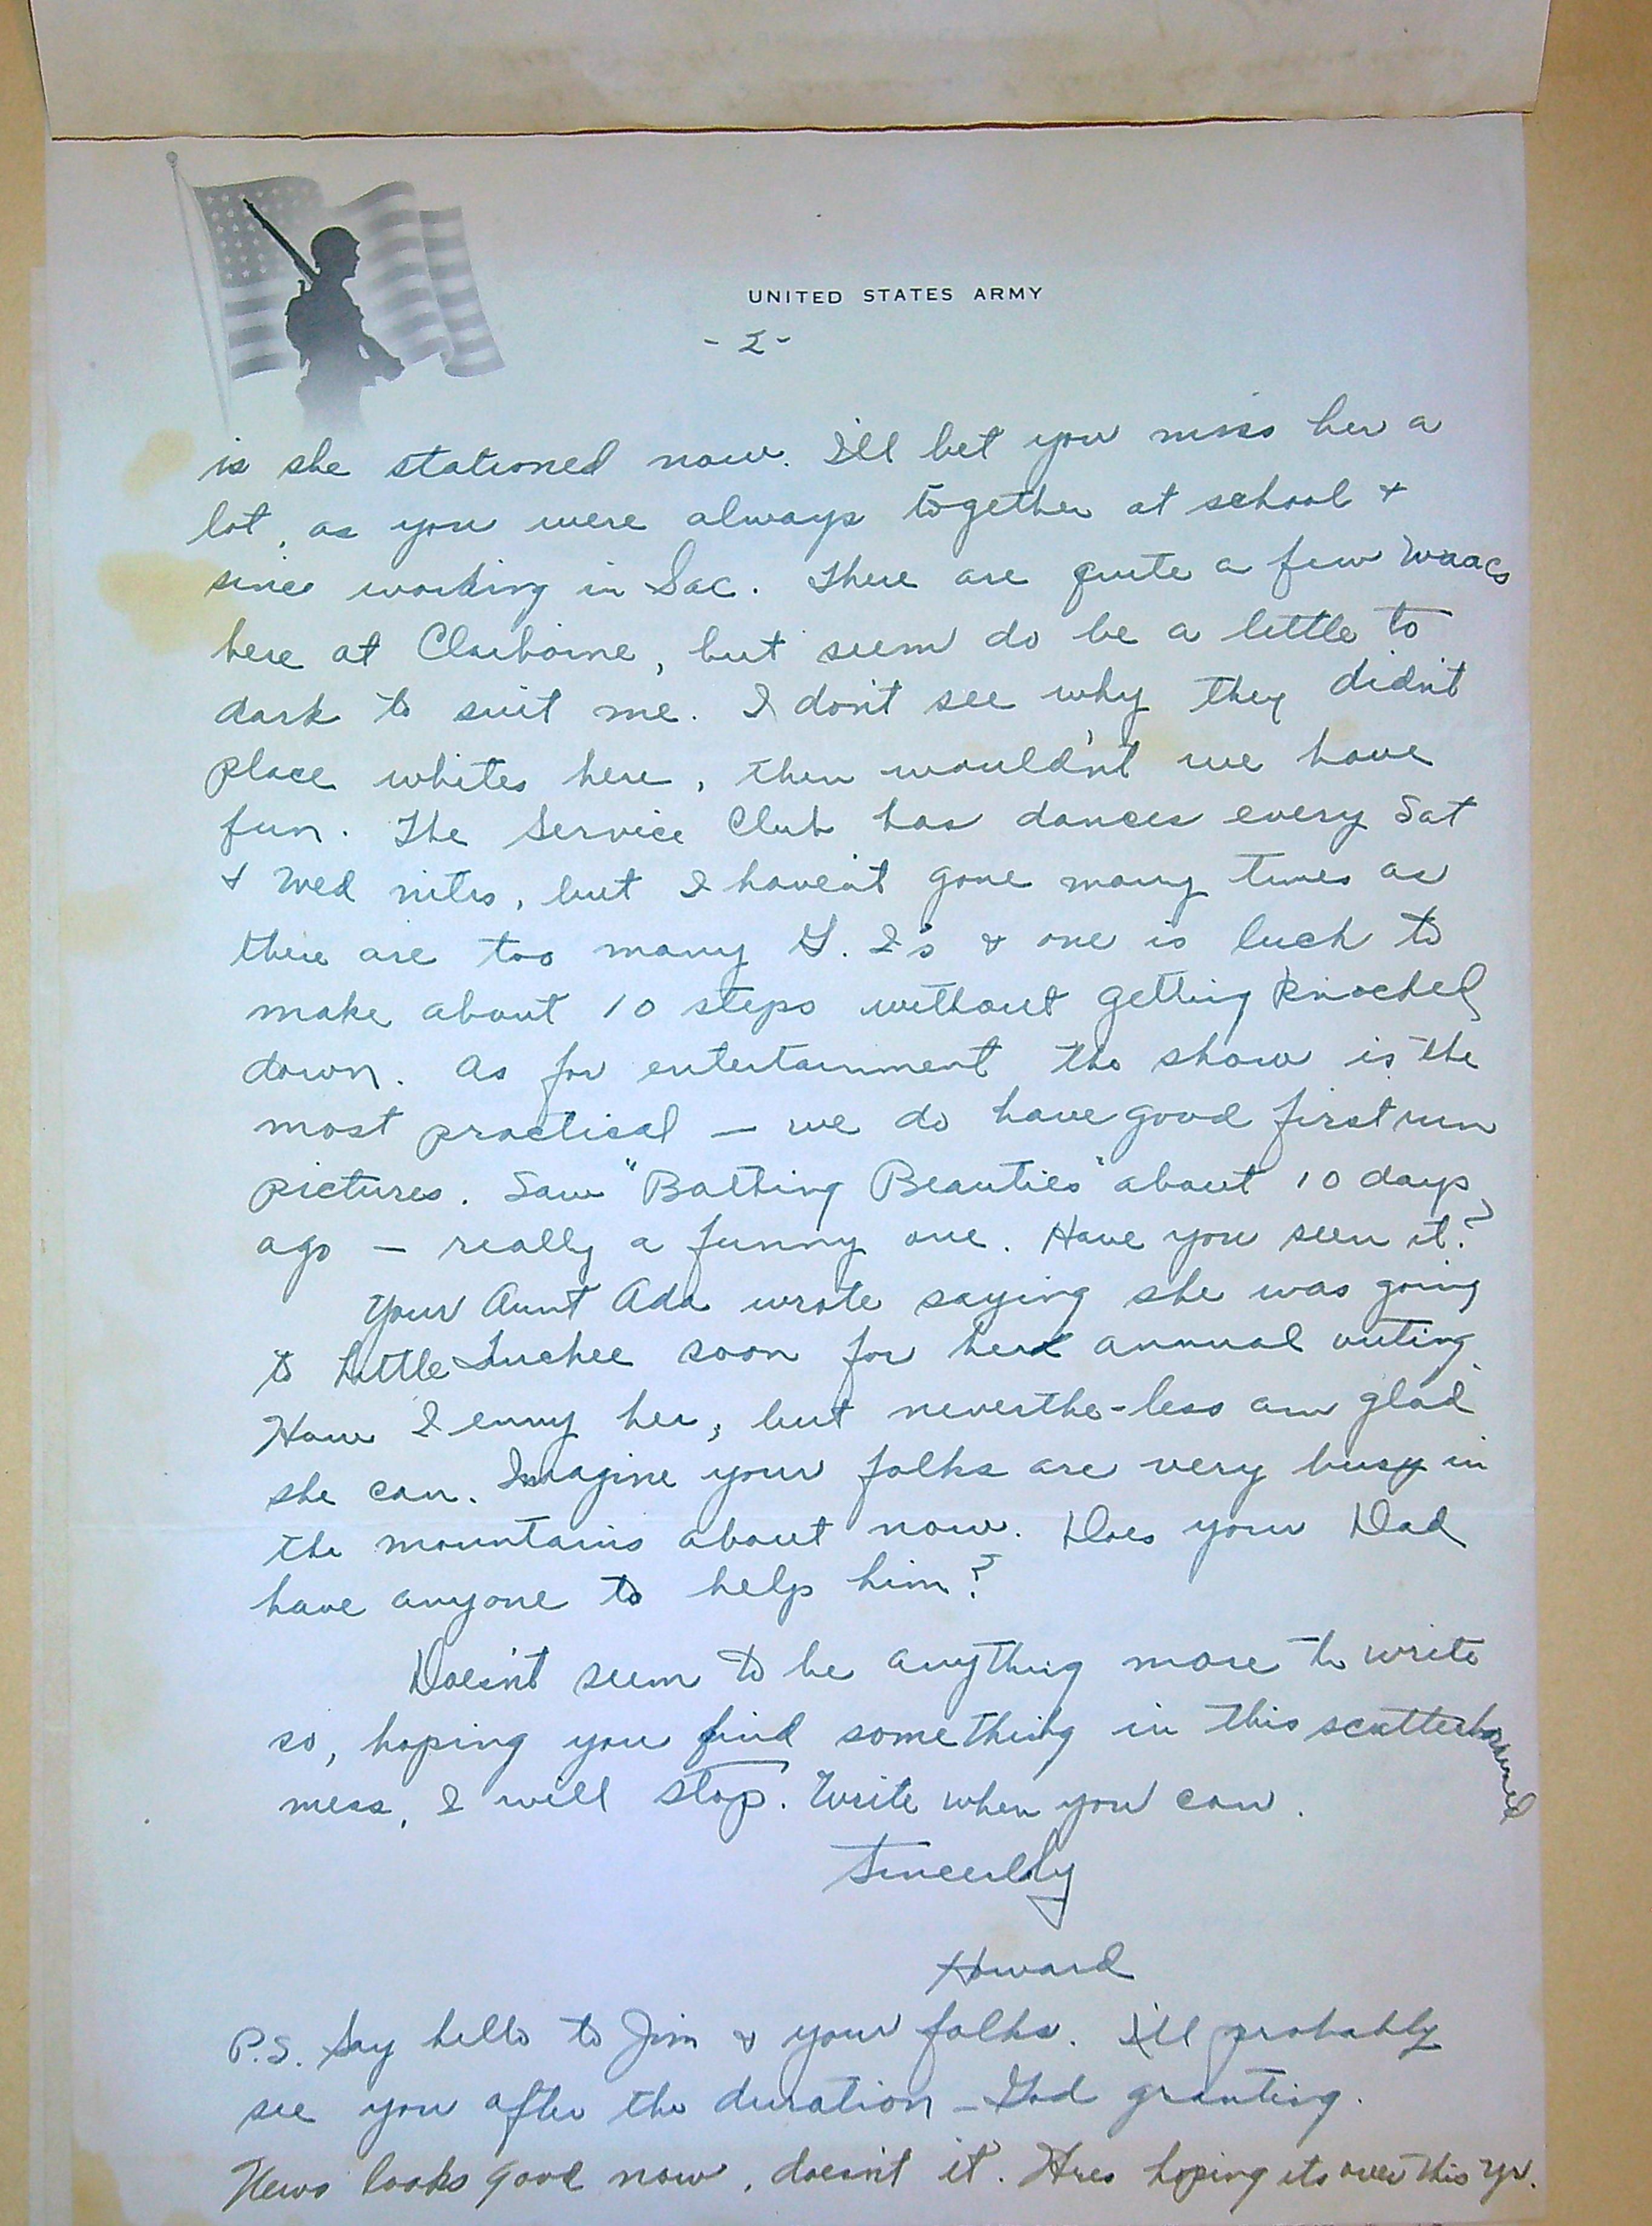 UNITED STATES ARMY
- 2 -
is she stationed now. I'll bet you miss her a
lot, as you were always together at school &
since working in Sac. There are quite a few Waacs
here at Claiborne, but seem do be a little to
dark to suit me. I don't see why they didn't
place whites here, then wouldn't we have
fun. The Service Club has dances every Sat
& Wed nites, but I haven't gone many times as
there are too many G. I's & one is luck to
make about 10 steps without getting knocked
down. As for entertainment the show is the
most practical — we do have good first run
pictures. Saw "Bathing Beauties" about 10 days
ago — really a funny one. Have you seen it?
Your Aunt Ada wrote saying she was going
to Little Truckee soon for her annual outing.
How I envy her, but neverthe-less am glad
she can. Imagine your folks are very busy in
the mountains about now. Does your Dad
have anyone to help him?
Doesn't seem to be anything more to write
so, hoping you find something in this scatterbrained
mess, I will stop. Write when you can.
Sincerely
Howard
P.S. Say hello to Jim & your folks. I'll probably
see you after the duration — God granting.
News looks good now, doesn't it. Heres hoping its over this yr.